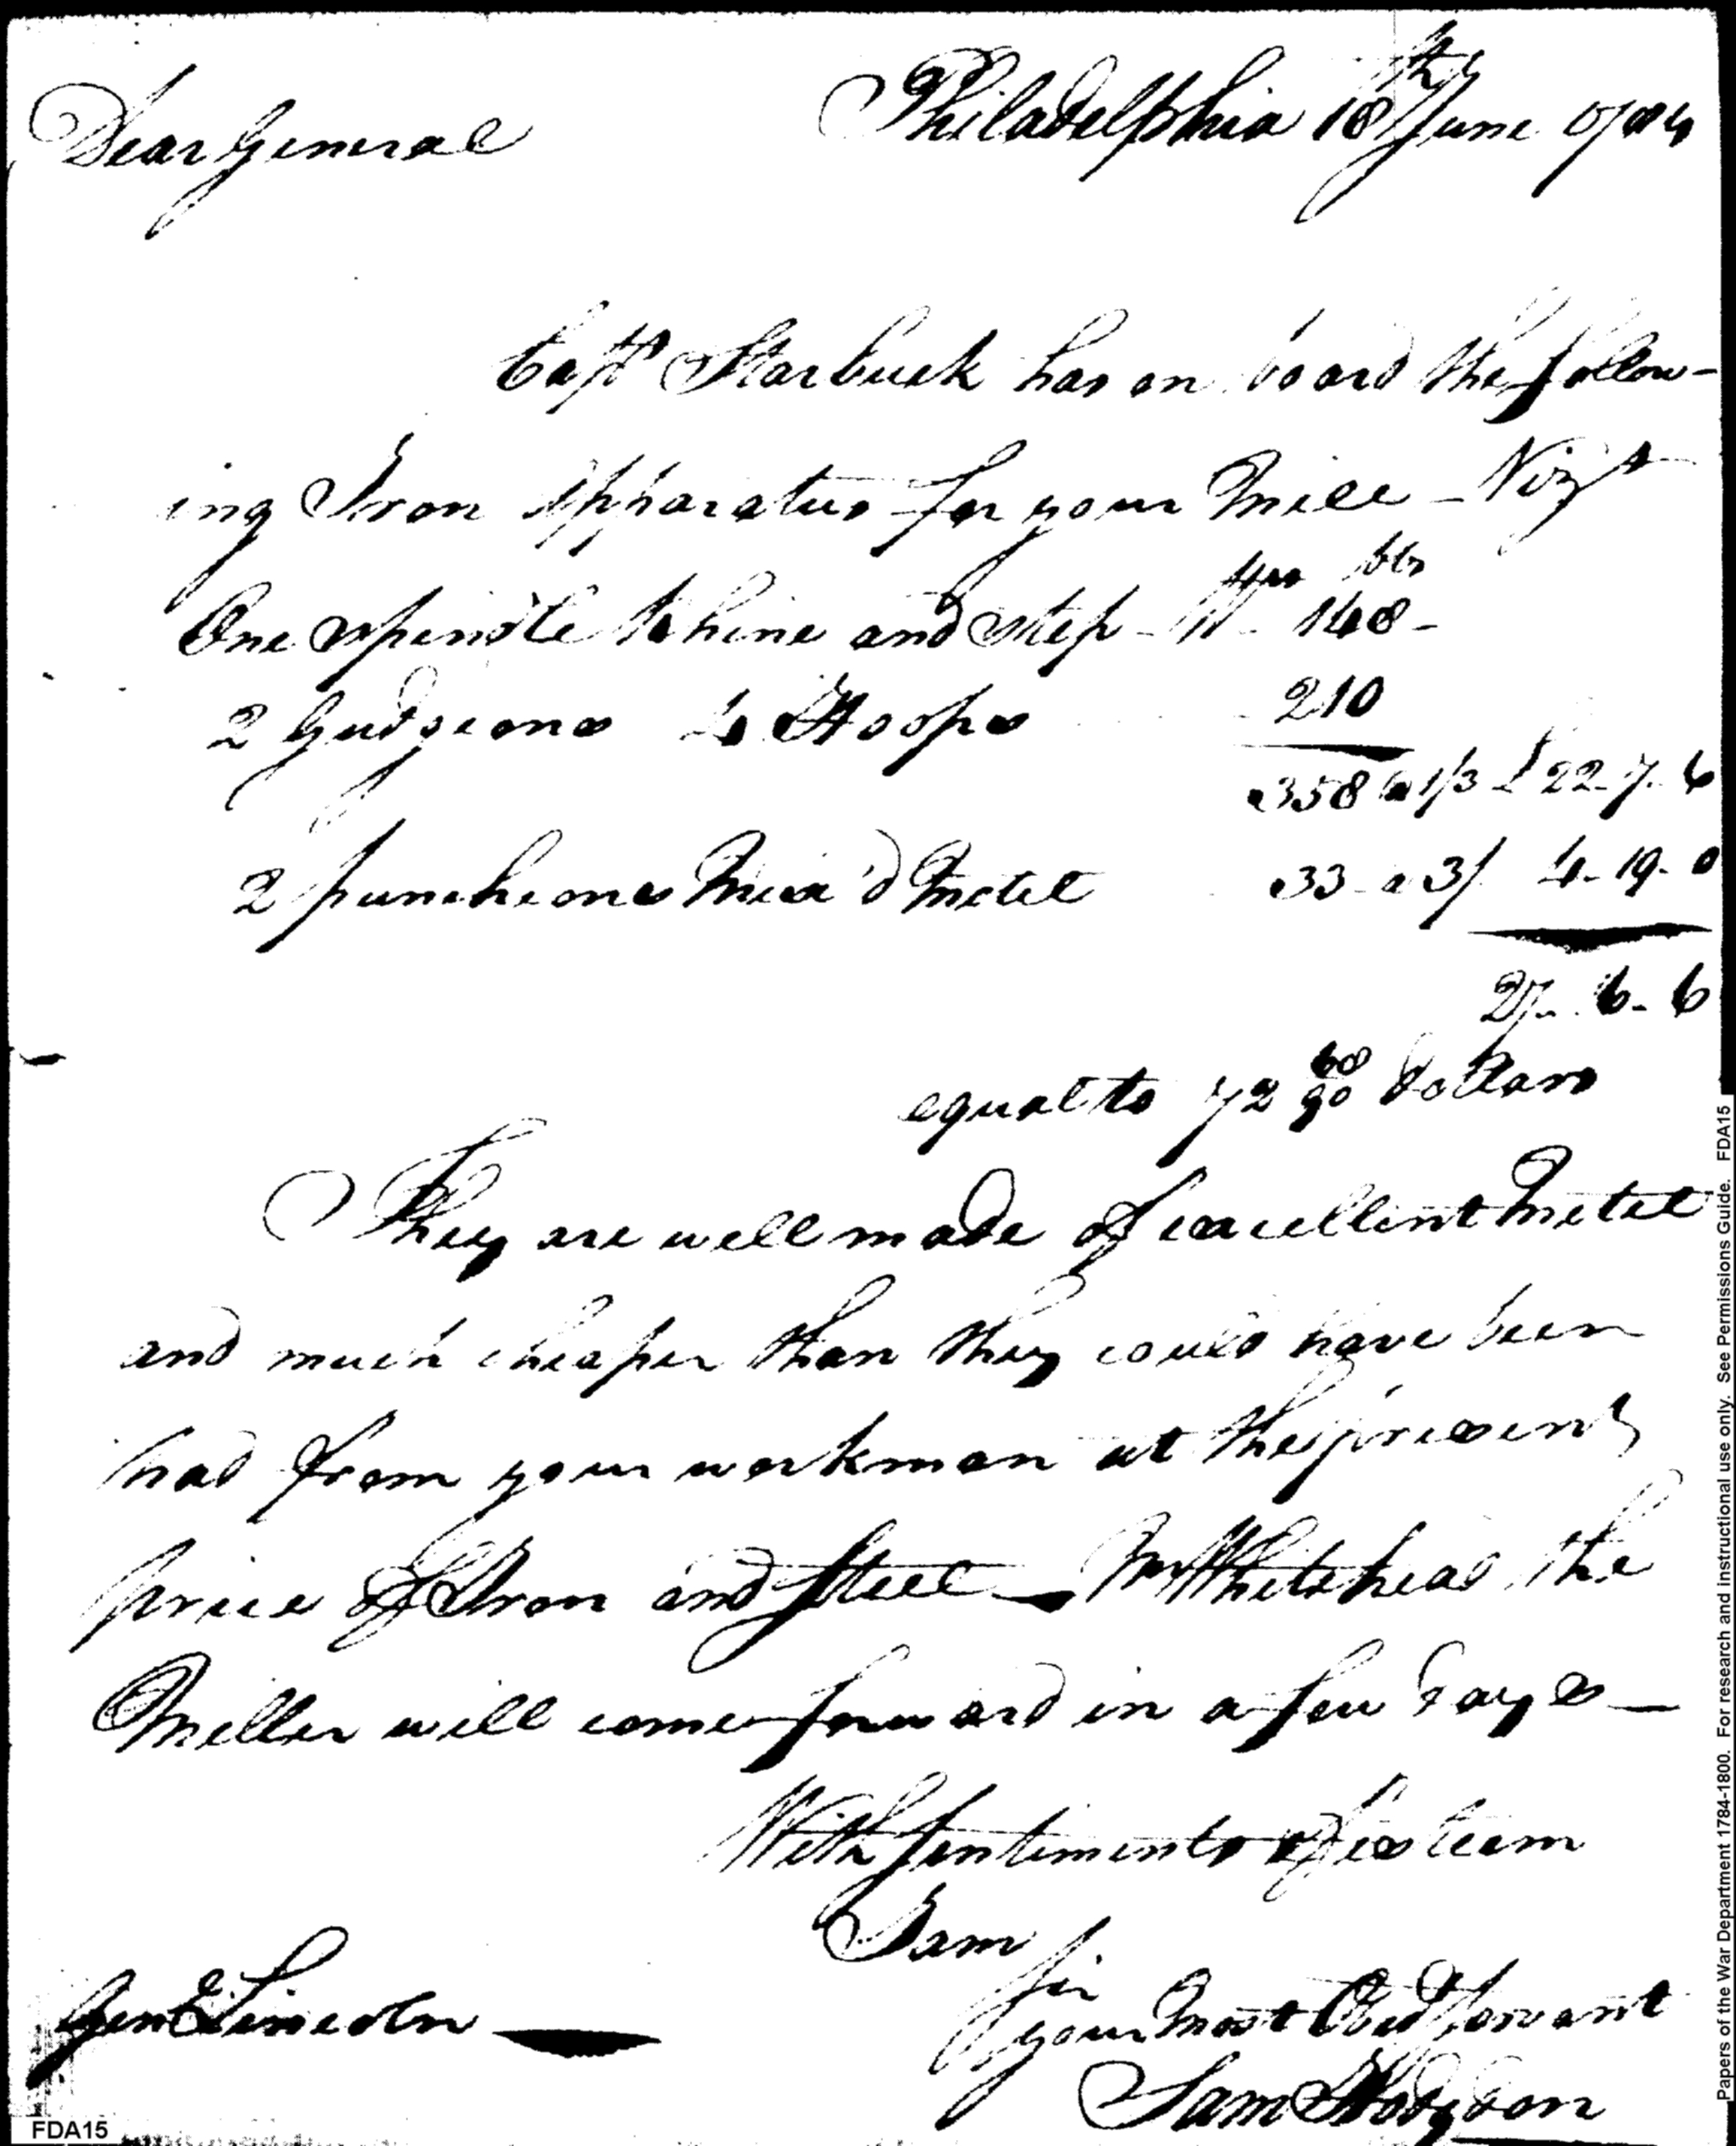 Philadelphia 18th June 1784
Dear General
Capt Starbuck has on board the follow-
ing Iron Apparatus for your Mill - Vizt
lbs
One spindle Rhine and Step - Wt 148 -
2 Gudgeons 4 Hoops 210
358 @ 1/3 £ 22 - 7 - 6
2 puncheons Mix'd Metel 33 a 3/ 4 - 19 - 0
27 - 6 - 6
equal to 72 68/90 Dollars
They are well made of excellent Metel
and much cheaper than they could have been
had from your workman at the present
price of Iron and Steel - Mr Whitehead the
Miller will come forward in a few days -
With sentiments of esteem
I am
Sir
your Most Obed Servant
Sam Hodgdon
Genl Lincoln
FDA15
Papers of the War Department 1784-1800. For research and instructional use only. See Permissions Guide. FDA15